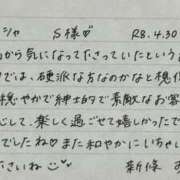 シャ S様♡ R8.4.30
から気になって下さっていたという
では、硬派な方なのかなと
穏やかで紳士的で素敵なお客
心して、楽しく過ごせて嬉しかったで
でしたね♡また和やかにいちゃい
ださいね 新條